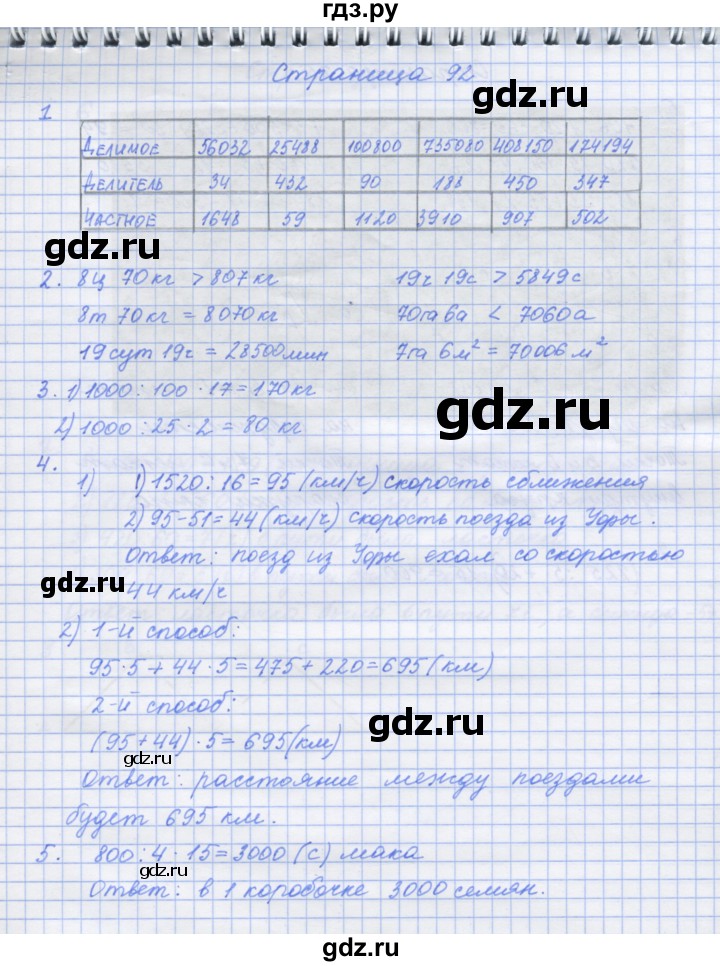 гдз.ру
Страница 92
1
Делимое 56032 25488 100800 735080 408150 174194
Делитель 34 432 90 188 450 347
Частное 1648 59 1120 3910 907 502
2. 8ц 70кг > 807кг 19ч 19с > 5849с
8т 70кг = 8070кг 70га 6а < 7060а
19сут 19ч = 28500мин 7га 6м² = 70006м²
3. 1) 1000 : 100 · 17 = 170кг
2) 1000 : 25 · 2 = 80 кг
4.
1) 1) 1520 : 16 = 95 (км/ч) скорость сближения
2) 95-51=44 (км/ч) скорость поезда из Уфры.
Ответ: поезд из Уфры ехал со скоростью
44 км/ч
2) 1-й способ:
95·5 + 44·5 = 475 + 220 = 695 (км)
2-й способ:
(95+44) · 5 = 695 (км)
Ответ: расстояние между поездами
будет 695 км.
5. 800 : 4 · 15 = 3000 (с) мака
Ответ: в 1 коробочке 3000 семян.
gdz.ru
gdz.ru
gdz.ru
gdz.ru
gdz.ru
gdz.ru
gdz.ru
gdz.ru